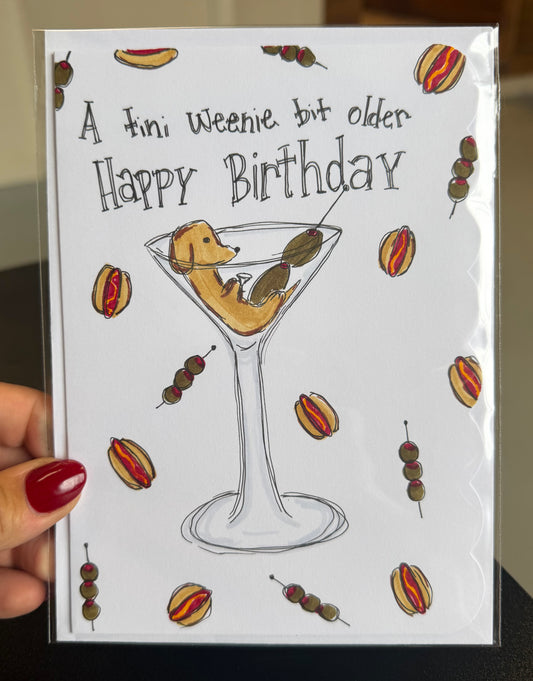 A tini weenie bit older
Happy Birthday